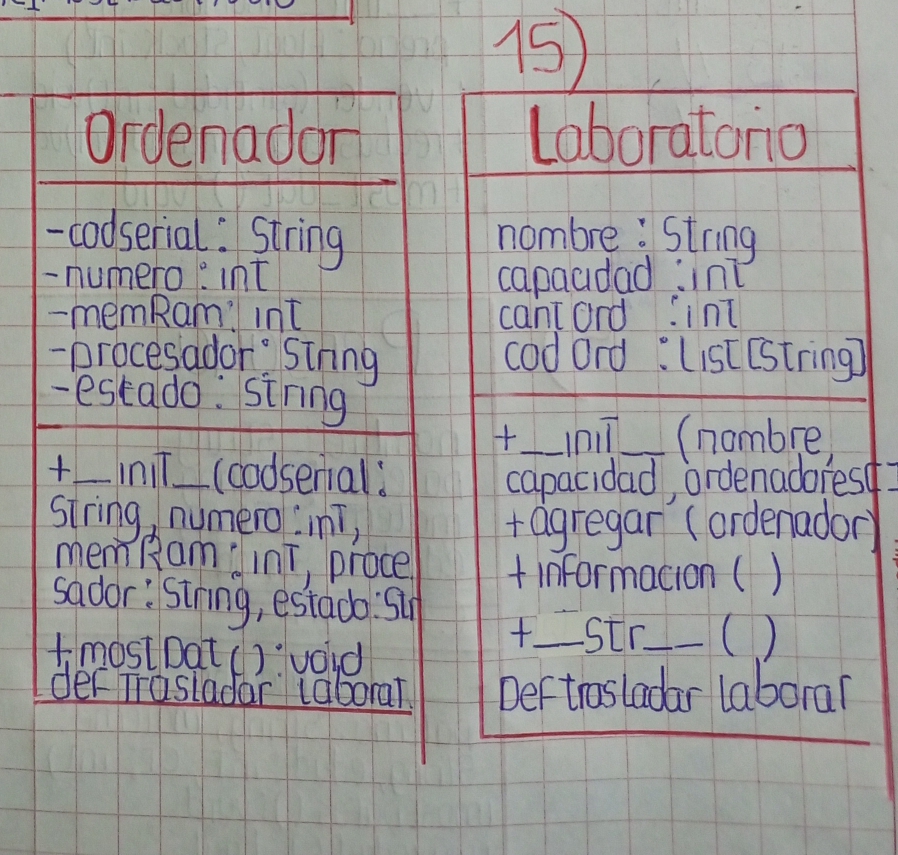 15)
Ordenador
-codserial: String
-numero: int
-memRam: int
-procesador: String
-estado: String
+__init__(codserial:
String, numero: int,
memRam: int, proce
sador: String, estado: Str
+mostDat(): void
def trasladar laborat.
Laboratorio
nombre: String
capacidad: int
cantOrd: int
codOrd: List[String]
+__init__(nombre,
capacidad, ordenadores
+agregar (ordenador)
+informacion ( )
+__str__ ( )
Def trasladar laborar